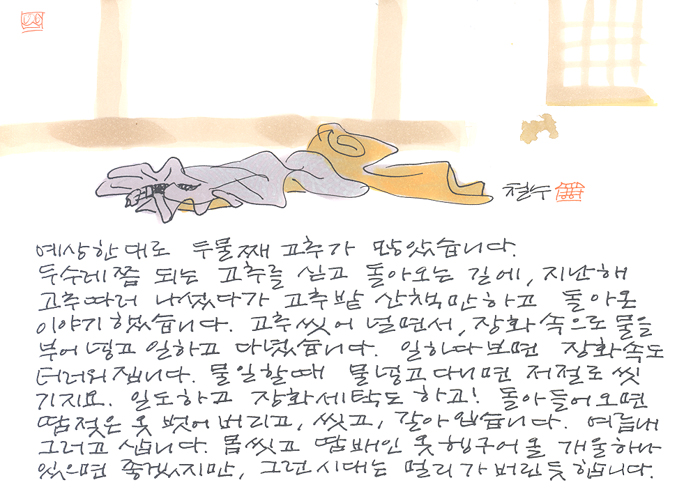 철수
예상한대로 두물째 고추가 많았습니다.
두수레쯤 되는 고추를 싣고 돌아오는 길에, 지난해
고추따러 나섰다가 고추밭 산책만하고 돌아온
이야기했습니다. 고추씻어 널면서, 장화속으로 물을
부어넣고 일하고 다녔습니다. 일하다보면 장화속도
더러워집니다. 물일할때 물넣고다니면 저절로 씻
기지요. 일도하고 장화세탁도 하고! 돌아들어오면
땀젖은 옷 벗어버리고, 씻고, 갈아입습니다. 여름내
그러고 삽니다. 몸씻고 땀배인 옷헹구어올 개울하나
있으면 좋겠지만, 그런시대는 멀리가버린듯 합니다.